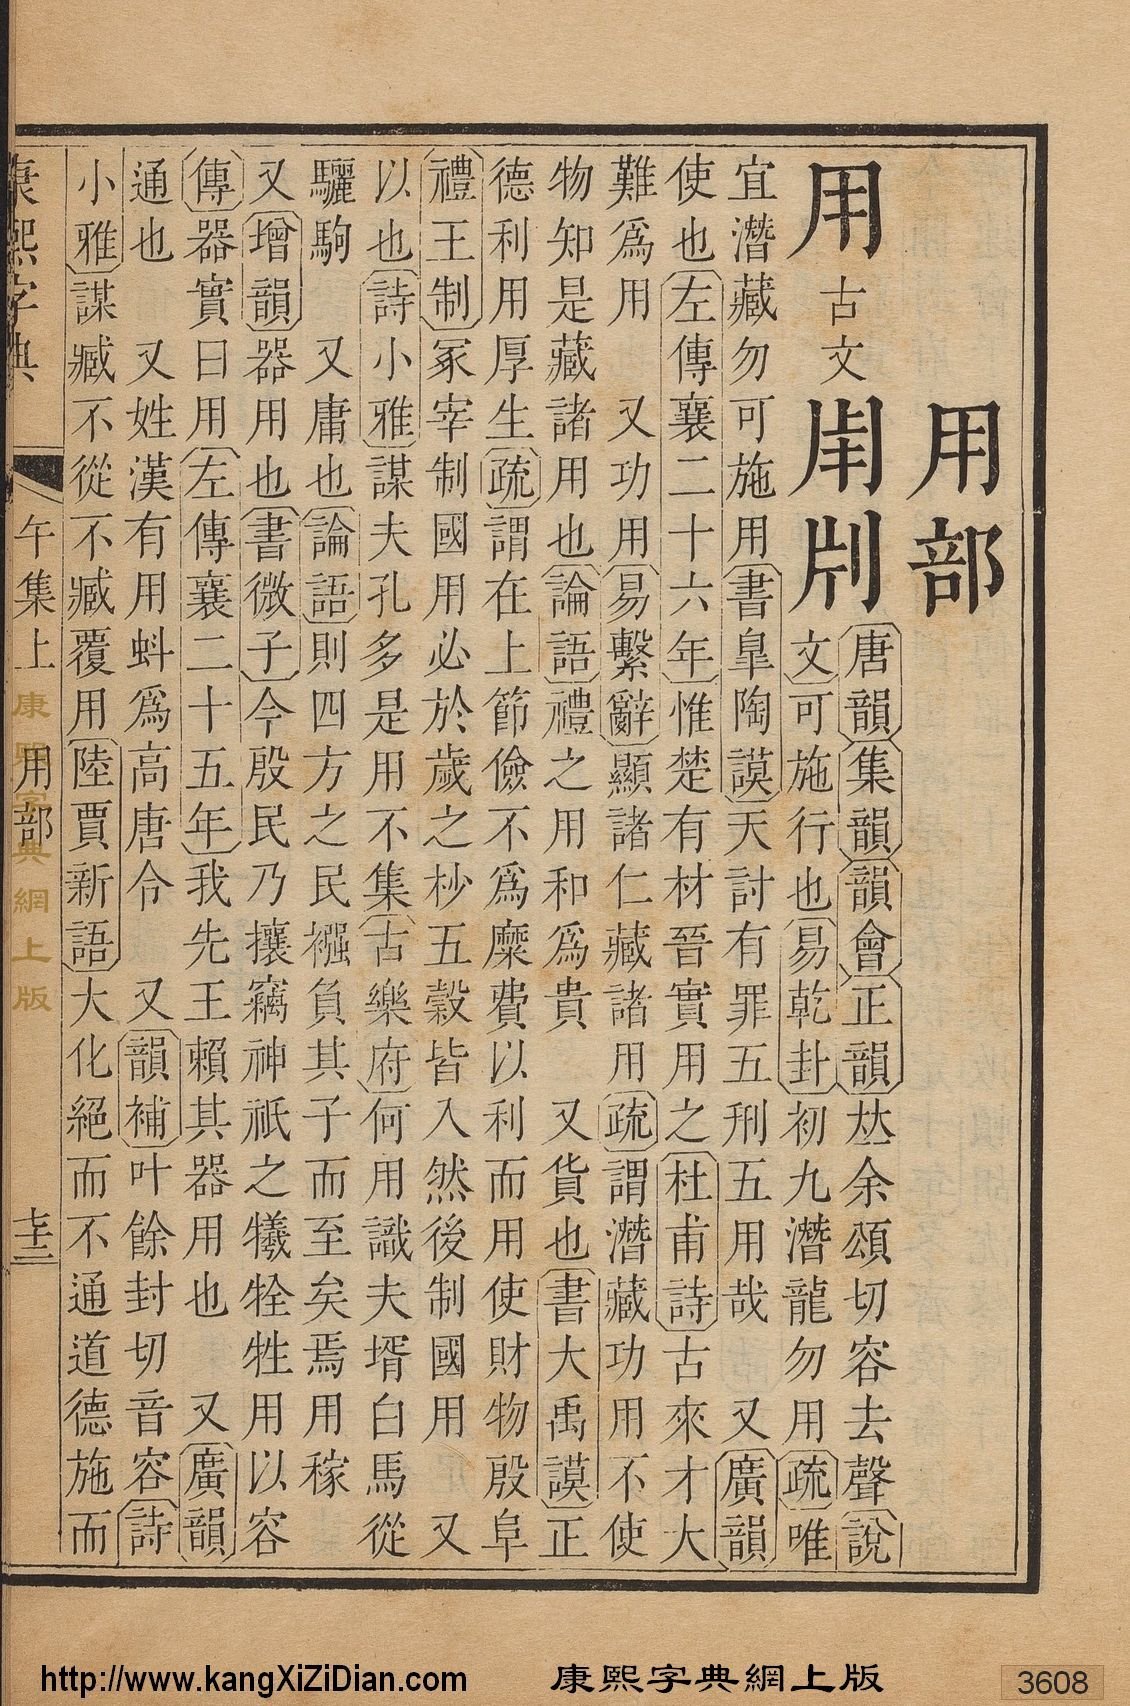 用部
用古文𤰃𤰆唐韻集韻韻會正韻𠀤余頌切容去聲說
文可施行也易乾卦初九潛龍勿用疏唯
宜潛藏勿可施用書臯陶謨天討有罪五刑五用哉 又廣韻
使也左傳襄二十六年惟楚有材晉實用之杜甫詩古來才大
難爲用 又功用易繫辭顯諸仁藏諸用疏謂潛藏功用不使
物知是藏諸用也論語禮之用和爲貴 又貨也書大禹謨正
德利用厚生疏謂在上節儉不爲糜費以利而用使財物殷阜
禮王制冢宰制國用必於歲之杪五穀皆入然後制國用 又
以也詩小雅謀夫孔多是用不集古樂府何用識夫壻白馬從
驪駒 又庸也論語則四方之民襁負其子而至矣焉用稼
又增韻器用也書微子今殷民乃攘竊神祇之犧牷牲用以容
傳器實曰用左傳襄二十五年我先王賴其器用也 又廣韻
通也 又姓漢有用蚪爲高唐令 又韻補叶餘封切音容詩
小雅謀臧不從不臧覆用陸賈新語大化絕而不通道德施而
康熙字典 午集上 用部 七十二
康熙字典網上版
http://www.kangXiZiDian.com 康熙字典網上版 3608